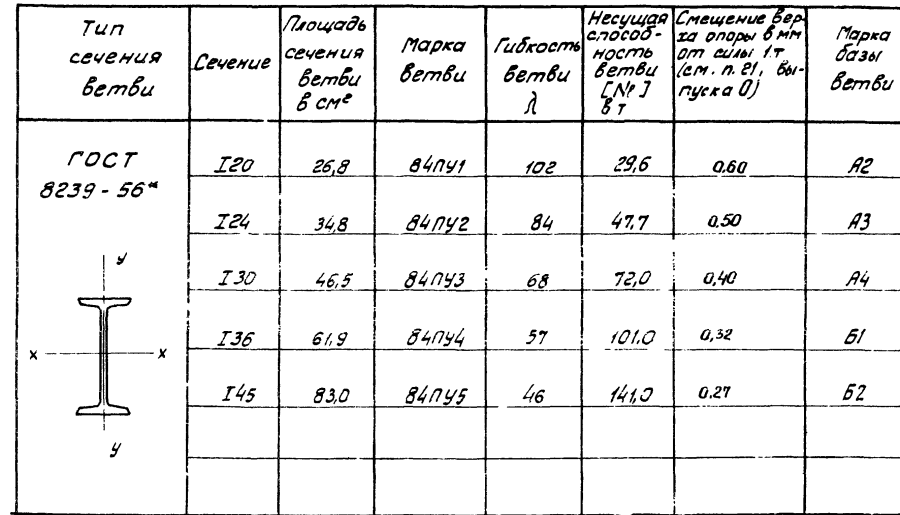 Тип
сечения
ветви
Сечение
Площадь
сечения
ветви
в см²
Марка
ветви
Гибкость
ветви
λ
Несущая
способ-
ность
ветви
[Nᵖ]
в т
Смещение вер-
ха опоры в мм
от силы 1т
(см. п. 21, вы-
пуска 0)
Марка
базы
ветви
ГОСТ
8239 - 56*
I20 26,8 84ПУ1 102 29,6 0,60 А2
I24 34,8 84ПУ2 84 47,7 0,50 А3
I30 46,5 84ПУ3 68 72,0 0,40 А4
I36 61,9 84ПУ4 57 101,0 0,32 Б1
I45 83,0 84ПУ5 46 141,0 0,27 Б2
у
х х
у